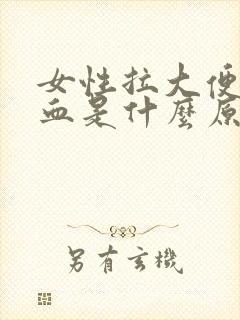 女性拉大便
血是什麼原
另有玄機